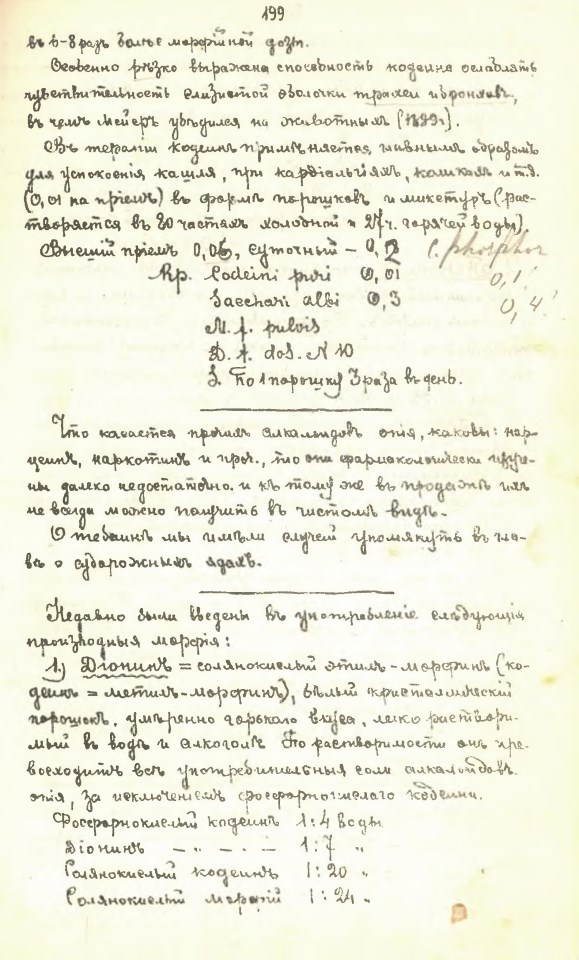 199
въ 6-8 разъ болѣе морфійной дозы.
Особенно рѣзко выражена способность кодеина ослаблять
чувствительность слизистой оболочки трахеи и бронховъ,
въ чемъ Мейеръ убѣдился на животныхъ (1899г.).
Въ терапіи кодеинъ примѣняется главнымъ образомъ
для успокоенія кашля, при кардіалгіяхъ, коликахъ и т.д.
(0,01 на пріемъ) въ формѣ порошковъ и микстуръ (рас-
творяется въ 80 частяхъ холодной и 27 ч. горячей воды).
Высшій пріемъ 0,05, суточный — 0,2 C. phosphor
Rp. Codeini puri 0,01 0,1!
Sacchari albi 0,3 0,4!
M. f. pulvis
D. t. dos. N 10
S. По 1 порошку 3 раза въ день.
Что касается прочихъ алкалоидовъ опія, каковы: нар-
цеинъ, наркотинъ и проч., то они фармакологически изуче-
ны далеко недостаточно. и къ тому же въ продажѣ ихъ
не всегда можно получить въ чистомъ видѣ.
О тебаинѣ мы имѣли случай упомянуть въ гла-
вѣ о судорожныхъ ядахъ.
Недавно были введены въ употребленіе слѣдующія
производныя морфія:
1.) Діонинъ = солянокислый этилъ-морфинъ (ко-
деинъ = метилъ-морфинъ), бѣлый кристаллическій
порошокъ, умѣренно горькаго вкуса, легко раствори-
мый въ водѣ и алкоголѣ. По растворимости онъ пре-
восходитъ всѣ употребительныя соли алкалоидовъ
опія, за исключеніемъ фосфорнокислаго кодеина.
Фосфорнокислый кодеинъ 1:4 воды
Діонинъ — „ — . — 1:7 „
Солянокислый кодеинъ 1:20 „
Солянокислый морфій 1:24 „